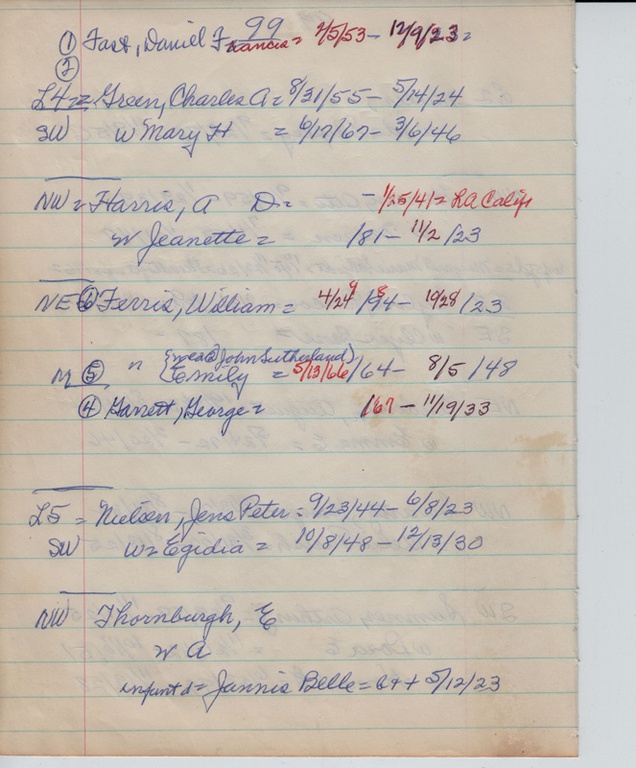 99
① Fast, Daniel Francis = 2/5/53 - 12/9/23 =
②
L4 = Green, Charles A = 8/31/55 - 5/14/24
SW w Mary H = 6/17/67 - 3/6/46
NW = Harris, A D = - 1/25/41 = LA Calif
w Jeanette = /81 - 11/2/23
NE ⑥ Ferris, William = 4/24 /94 - 10/28/23
M ⑤ " {mead John Sutherland} Emily = 5/13/66 /64 - 8/5/48
④ Garrett, George = /67 - 11/19/33
L5 = Nielsen, Jens Peter = 9/23/44 - 6/8/23
SW w = Egidia = 10/8/48 - 12/13/30
NW Thornburgh, E
w A
infant d = Jannis Belle = b + + 5/12/23